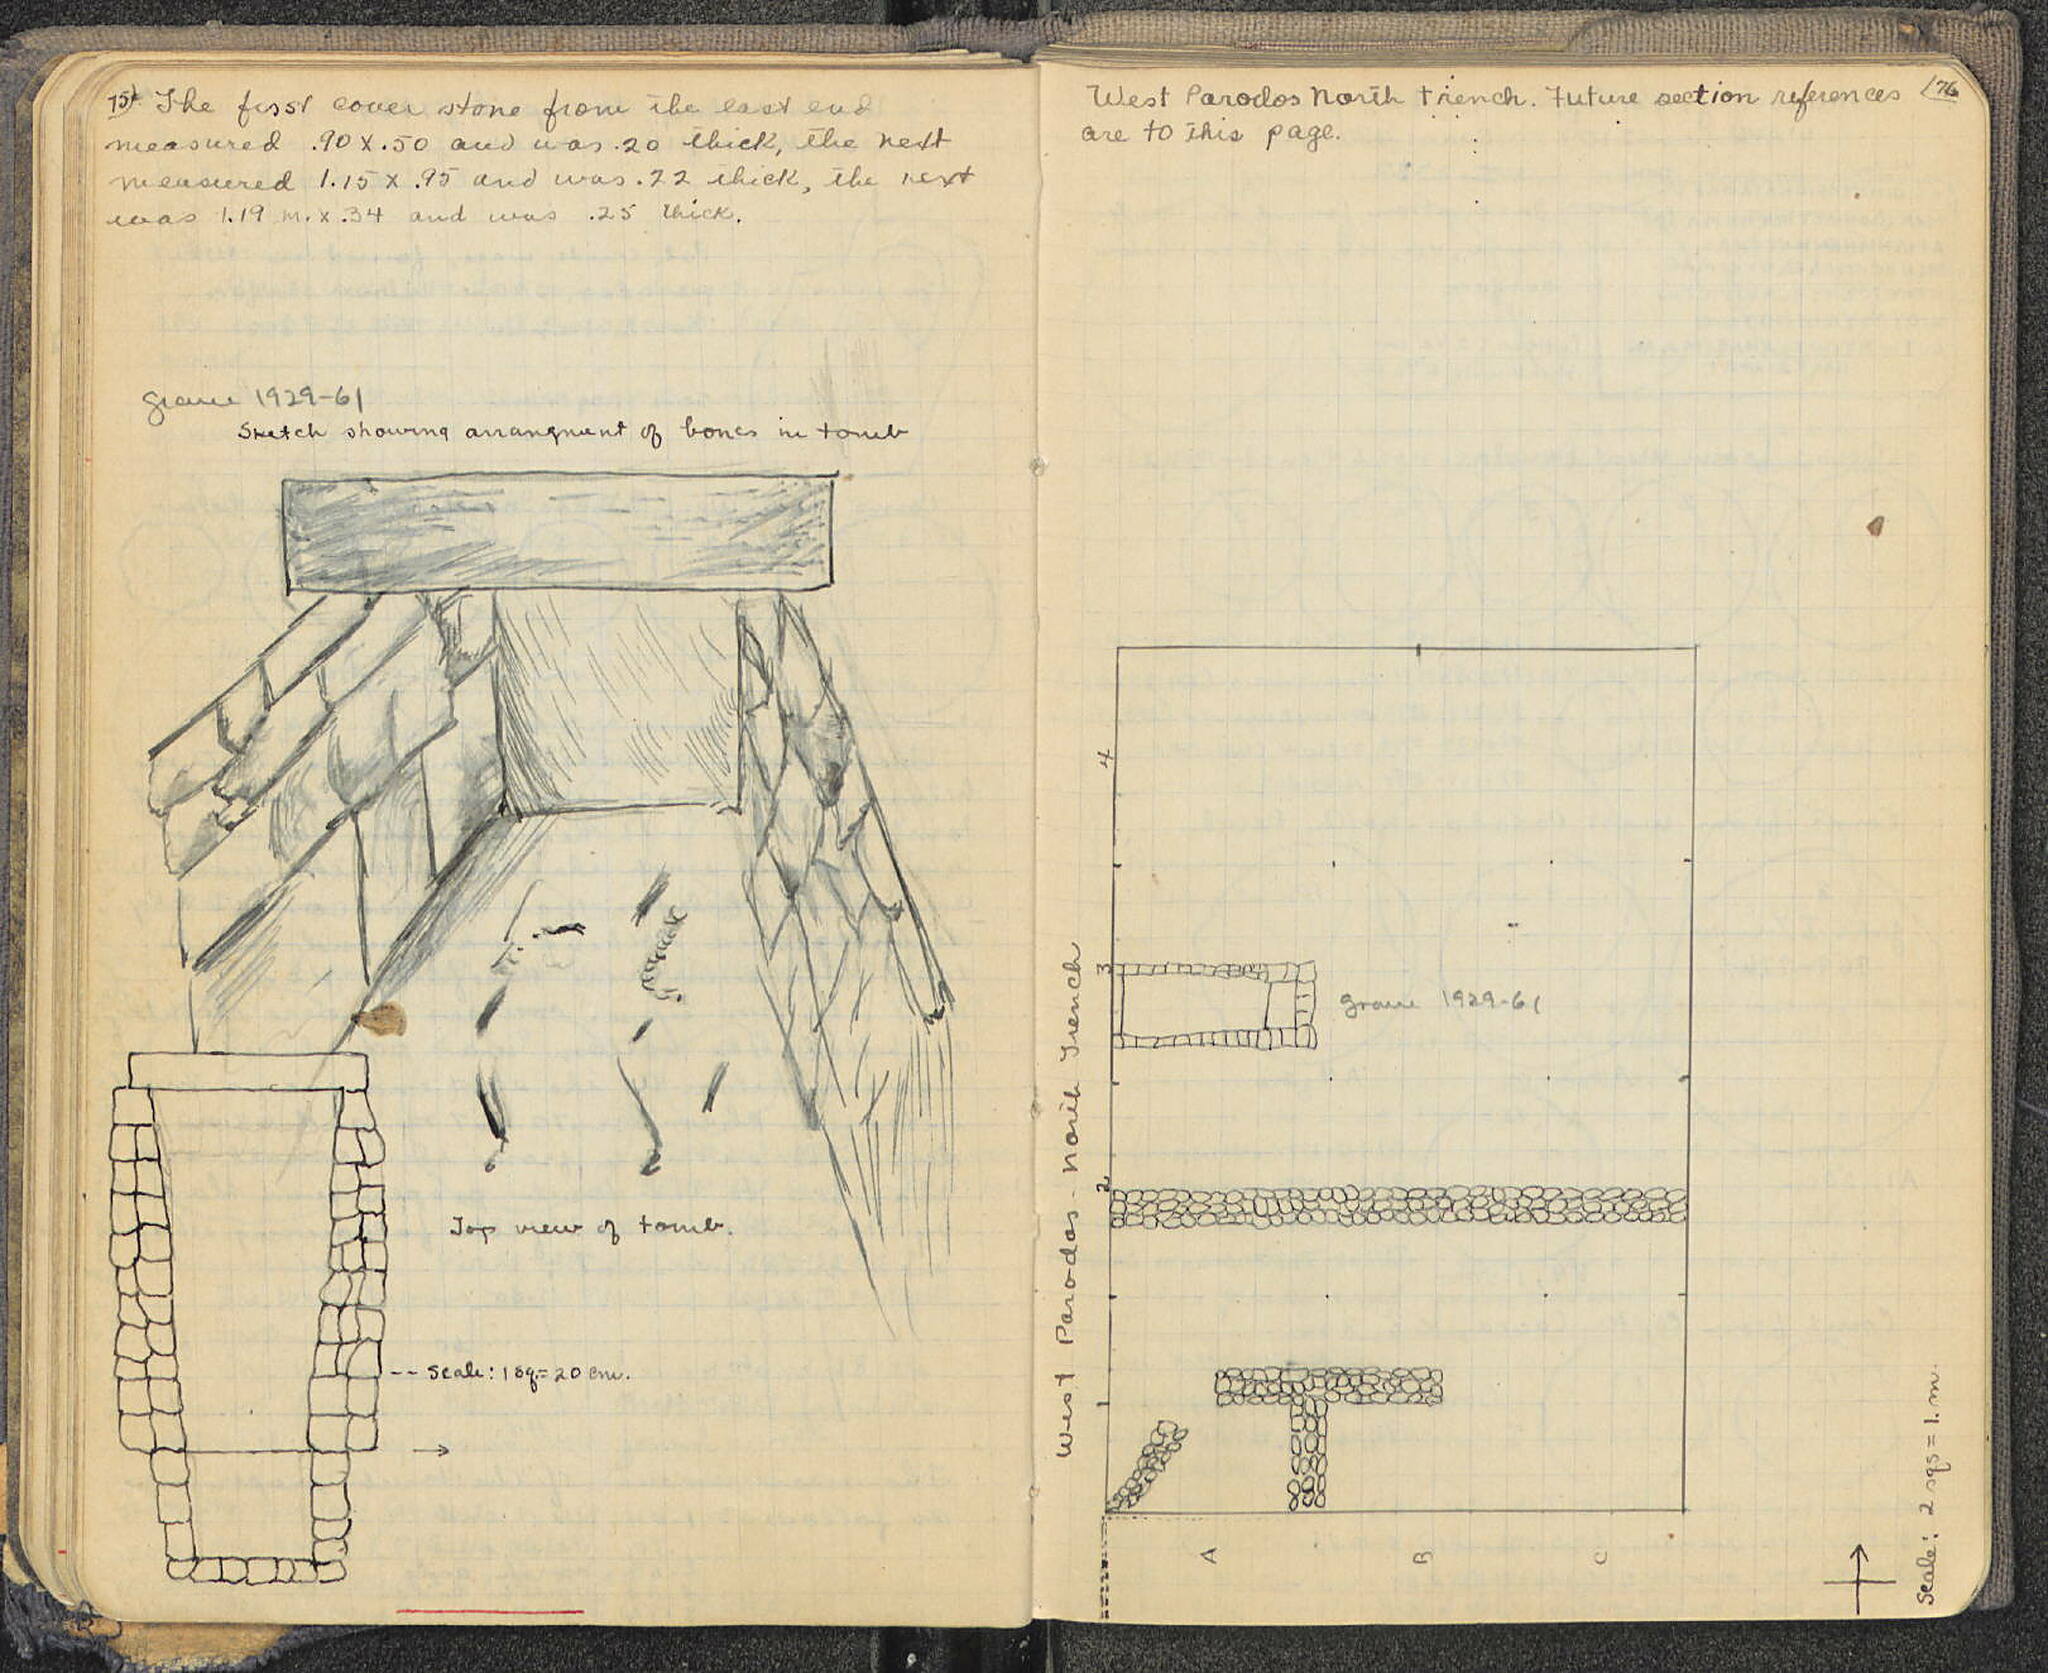 75). The first cover stone from the east end
measured .90 x .50 and was .20 thick, the next
measured 1.15 x .95 and was .22 thick, the next
was 1.19 m. x .34 and was .25 thick.
Grave 1929-61
Sketch showing arrangment of bones in tomb
Top view of tomb.
-- Scale: 1 sq = 20 cm.
West Parodos North trench. Future section references
are to this page.
(76
4
3
2
1
Grave 1929-61
West Parodos - North Trench
A
B
C
Scale: 2 sqs = 1. m.